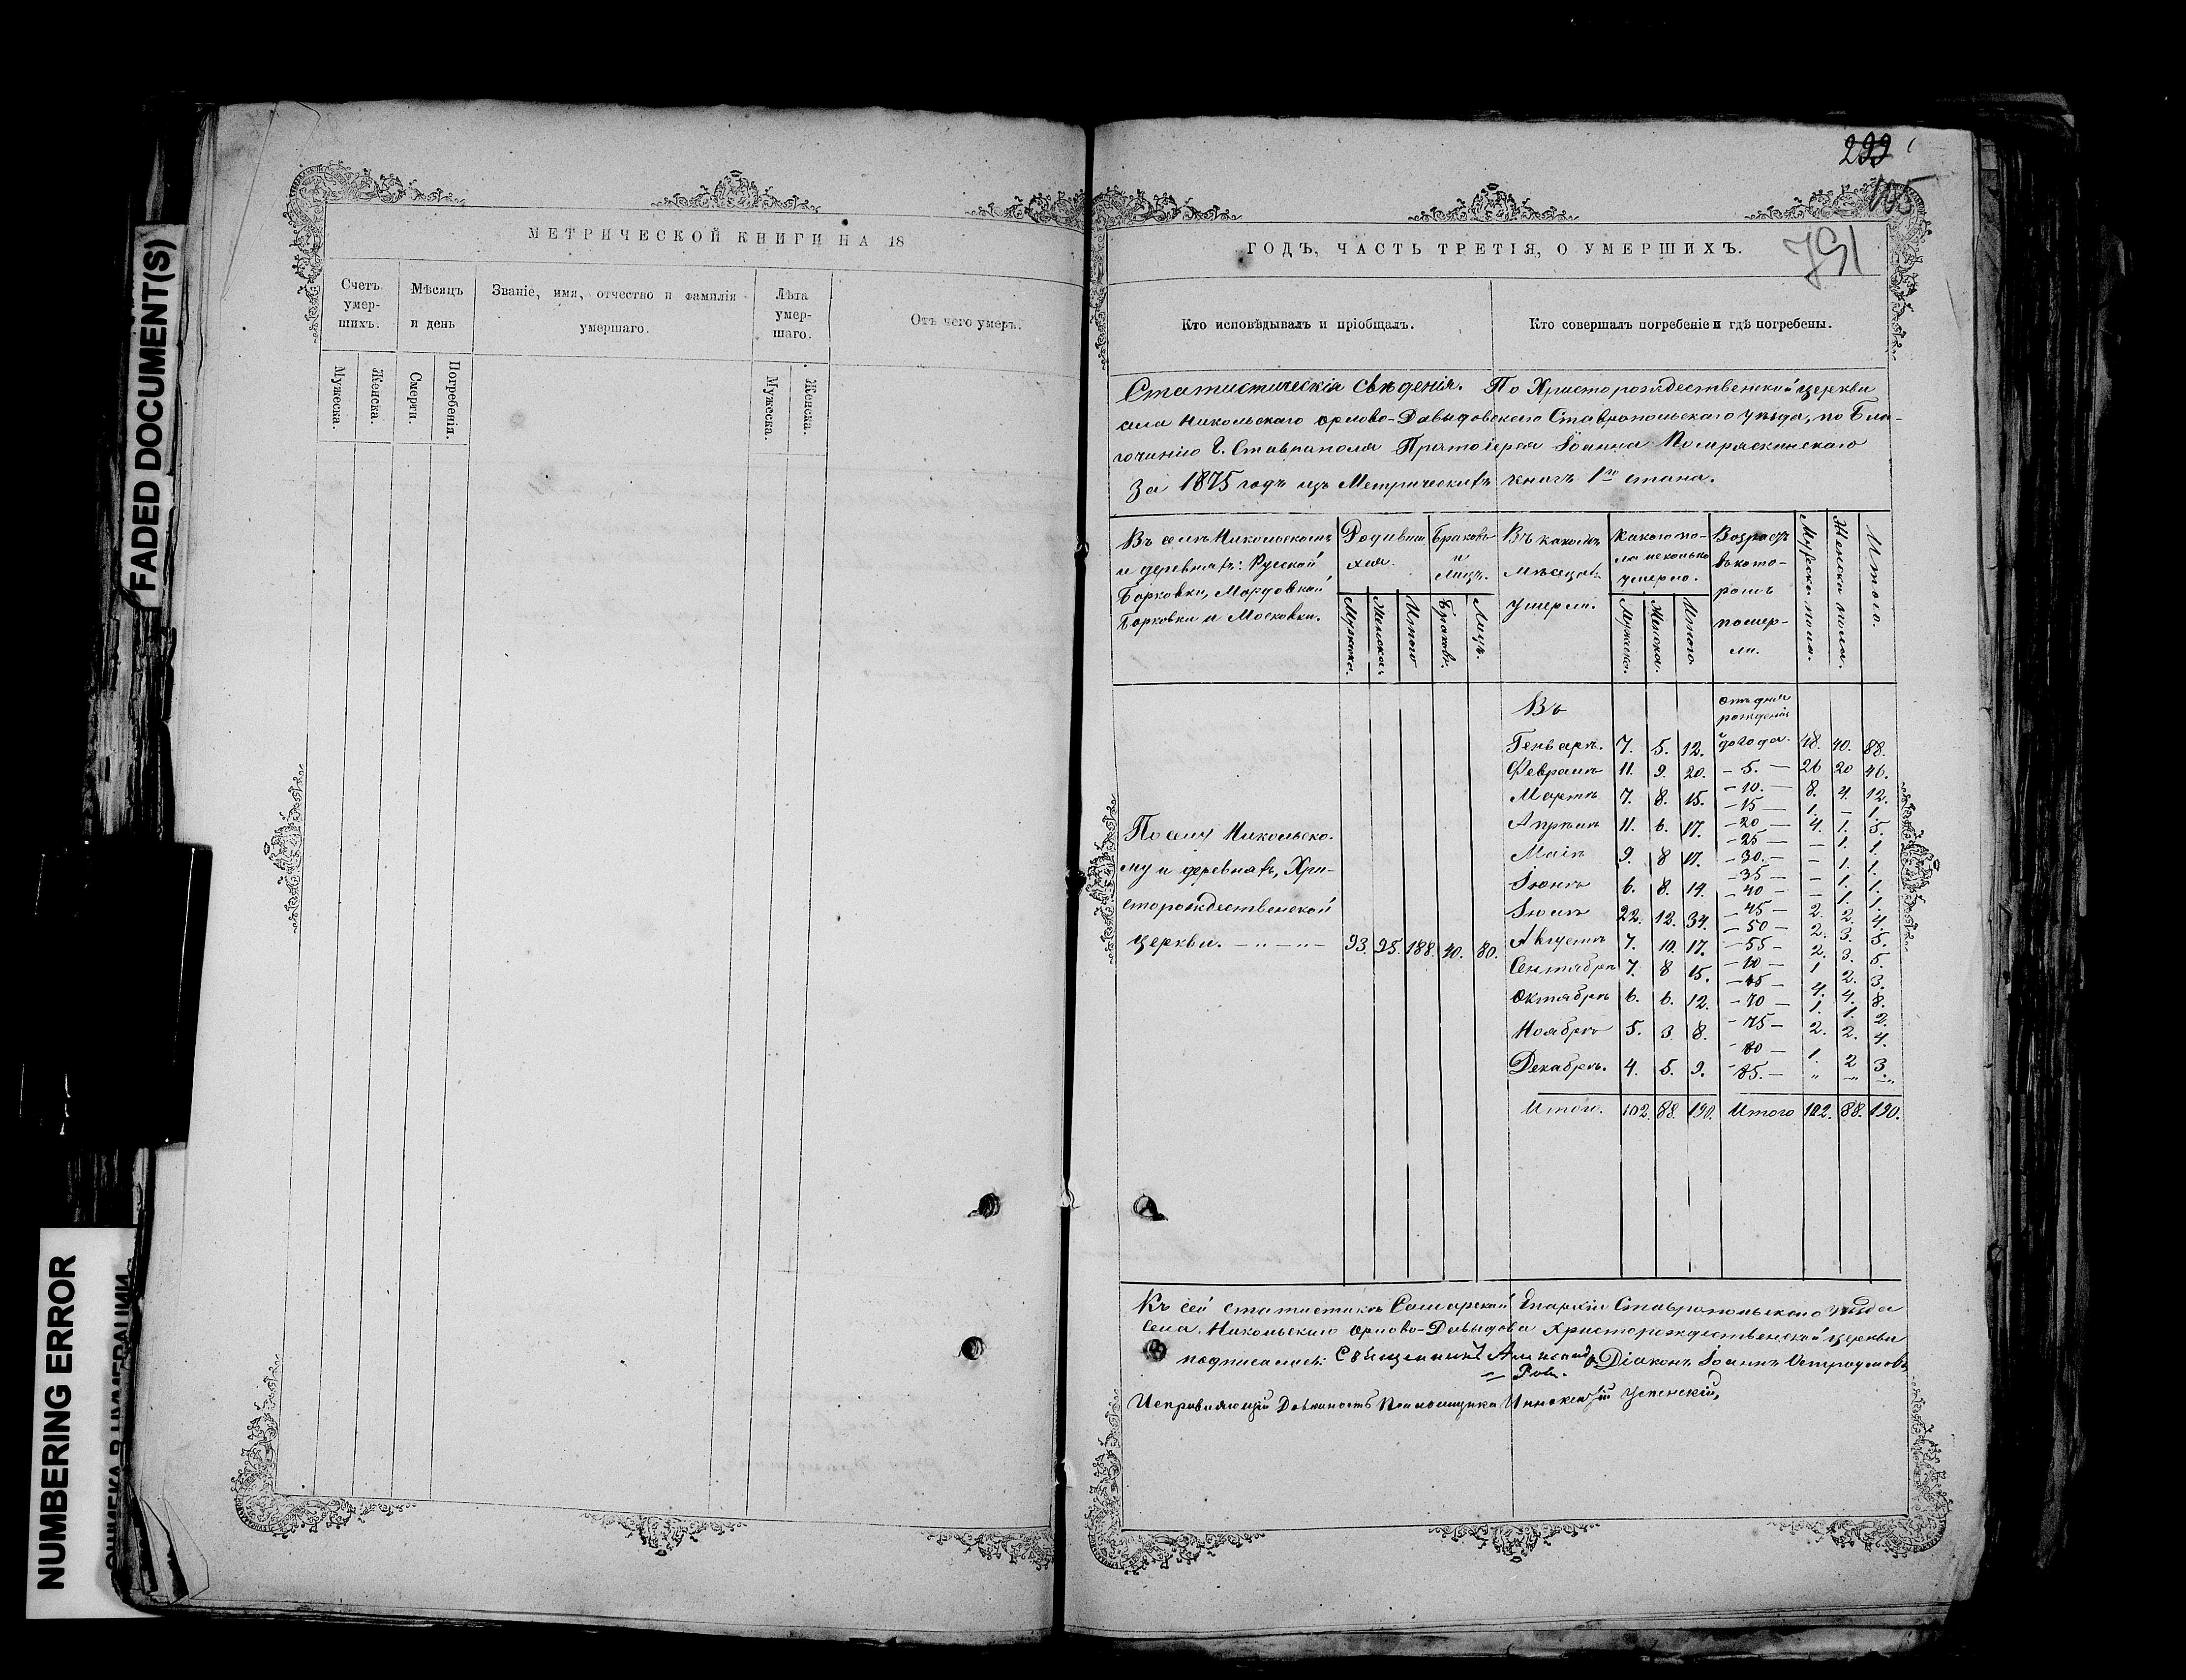 FADED DOCUMENT(S)
NUMBERING ERROR
МЕТРИЧЕСКОЙ КНИГИ НА 18
Счетъ умер-шихъ.
Мѣсяцъ и день
Званіе, имя, отчество и фамилія умершаго.
Лѣта умер-шаго.
Отъ чего умеръ.
Мужеска.
Женска.
Смерти.
Погребенія.
Мужеска.
Женска.
299
105
ГОДЪ, ЧАСТЬ ТРЕТІЯ, О УМЕРШИХЪ.
Кто исповѣдывалъ и пріобщалъ.
Кто совершалъ погребеніе и гдѣ погребены.
Статистическія свѣденія. По Христорождественской церкви
села Никольскаго Орлово-Давыдовскаго Ставропольскаго уѣзда, по Бла-
гочинію Г. Ставрополя Протоіерея Іоанна
За 1875 годъ изъ Метрическихъ книгъ 1го стана.
Въ селѣ Никольскомъ
и деревняхъ: Русской
Борковки, Мордовской
Борковки и Московки.
Родивши
хся.
Браковъ
и
Лицъ.
Въ какомъ
мѣсяцѣ
умерли.
Какого по-
ла и сколько
умерло.
Возрастъ
въ кото-
ромъ
помер-
ли.
Мужеска пола.
Женска пола.
Итого.
Мужеска.
Женска.
Итого
Браковъ.
Лицъ.
Мужеска.
Женска.
Итого.
Въ
отъ дня
рожденія
Генварѣ. 7. 5. 12. до года. 48. 40. 88.
Февралѣ 11. 9. 20. – 5. – 26 20 46.
Мартѣ 7. 8. 15. – 10. – 8. 4. 12.
– 15 – 1. – 1.
Апрѣлѣ 11. 6. 17. – 20 – 4. 1. 5.
– 25 – – 1. 1.
Маіѣ 9. 8 17. – 30. – – 1. 1.
– 35 – – 1. 1.
Іюнѣ 6. 8. 14. – 40 – – 1. 1.
– 45 – 2. 2. 4.
Іюлѣ 22. 12. 34. – 50 – 2. 3. 5.
Августѣ 7. 10. 17. – 55 – 2. 3. 5.
– 60 – 1 2. 3.
Сентябрѣ 7. 8 15. – 65 – 4. 4. 8.
Октябрѣ 6. 6. 12. – 70 – 1. 1. 2.
Ноябрѣ 5. 3 8. – 75 – 2. 2. 4.
– 80 – 1. 2 3.
Декабрѣ. 4. 5. 9. – 85. – „ „ „
По селу Никольско-
му и деревнямъ, Хри-
сторождественской
церкви. 93. 95. 188. 40. 80.
Итого. 102. 88. 190. Итого 102. 88. 190.
Къ сей статистикѣ Самарской Епархіи Ставропольскаго уѣзда
села Никольскаго Орлово-Давыдова Христорождественской церкви
подписались: Священникъ Діаконъ Іоаннъ Остроумовъ
Исправляющій Должность Псаломщика Иннокентій Успенскій,